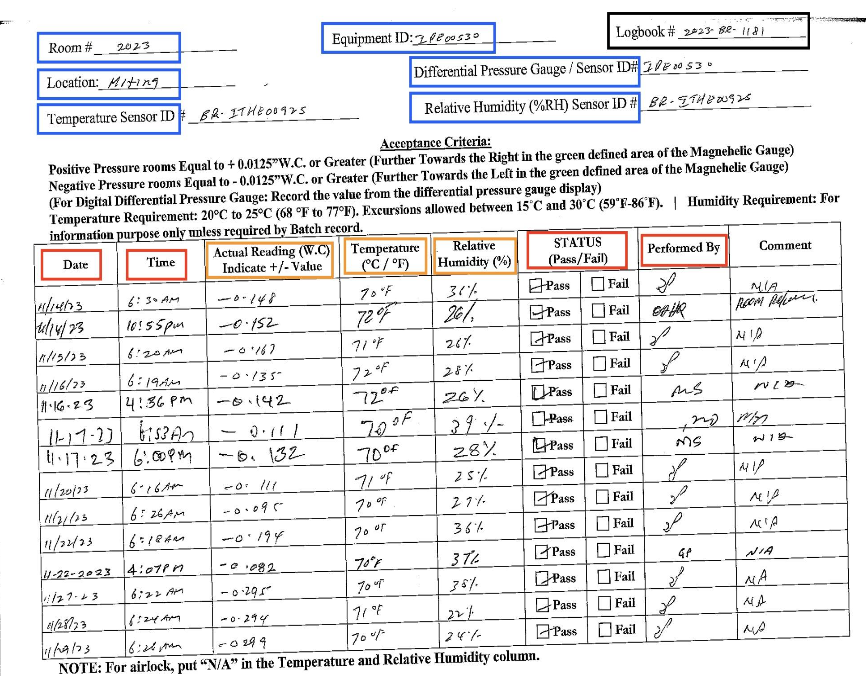 Room # 2023
Equipment ID: IPE00530
Logbook # 2023-BR-1181
Location: Miting
Differential Pressure Gauge / Sensor ID# IPE00530
Temperature Sensor ID # BR-ITHE00925
Relative Humidity (%RH) Sensor ID # BR-ITHE00925
Acceptance Criteria:
Positive Pressure rooms Equal to + 0.0125”W.C. or Greater (Further Towards the Right in the green defined area of the Magnehelic Gauge)
Negative Pressure rooms Equal to - 0.0125”W.C. or Greater (Further Towards the Left in the green defined area of the Magnehelic Gauge)
(For Digital Differential Pressure Gauge: Record the value from the differential pressure gauge display)
Temperature Requirement: 20°C to 25°C (68 °F to 77°F). Excursions allowed between 15°C and 30°C (59°F-86°F). | Humidity Requirement: For
information purpose only unless required by Batch record.
Date Time Actual Reading (W.C) Indicate +/- Value Temperature (°C / °F) Relative Humidity (%) STATUS (Pass/Fail) Performed By Comment
11/14/23 6:30AM -0.148 70°F 36% Pass Fail N/A
11/14/23 10:55pm -0.152 72°F 26% Pass Fail Room
11/15/23 6:20AM -0.167 71°F 26% Pass Fail N/A
11/16/23 6:19AM -0.135 72°F 28% Pass Fail N/A
11.16.23 4:36PM -0.142 72°F 26% Pass Fail MS N/A
11-17-23 6:53AM -0.111 70°F 39% Pass Fail N/A
11.17.23 6:00PM -0.132 70°F 28% Pass Fail MS N/A
11/20/23 6:16AM -0.111 71°F 25% Pass Fail N/A
11/21/23 6:26AM -0.095 70°F 27% Pass Fail N/A
11/22/23 6:18AM -0.194 70°F 36% Pass Fail N/A
11-22-2023 4:07PM -0.082 70°F 37% Pass Fail GP N/A
11/27-23 6:22AM -0.295 70°F 35% Pass Fail N/A
11/28/23 6:24AM -0.294 71°F 22% Pass Fail N/A
11/29/23 -0299 70°F 24% Pass Fail N/A
NOTE: For airlock, put “N/A” in the Temperature and Relative Humidity column.